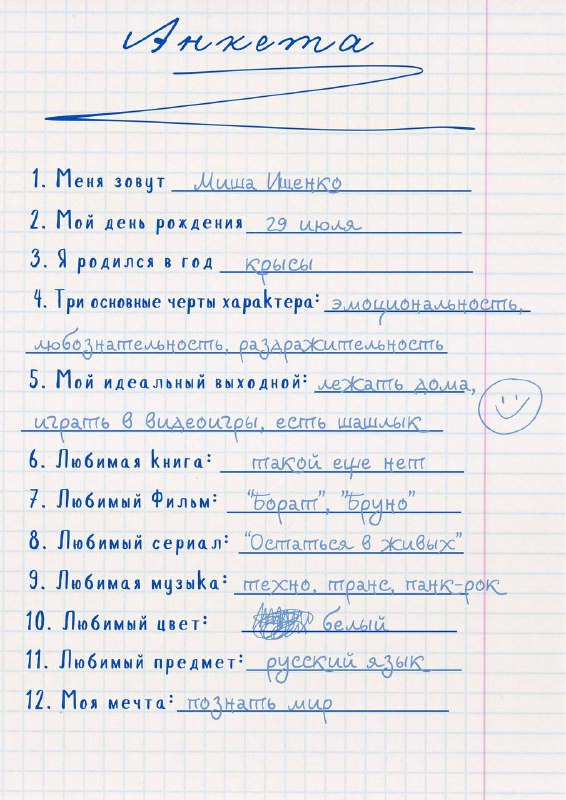 Анкета
1. Меня зовут Миша Ищенко
2. Мой день рождения 29 июля
3. Я родился в год крысы
4. Три основные черты характера: эмоциональность,
любознательность, раздражительность
5. Мой идеальный выходной: лежать дома,
играть в видеоигры, есть шашлык
6. Любимая книга: такой еще нет
7. Любимый Фильм: "Борат", "Бруно"
8. Любимый сериал: "Остаться в живых"
9. Любимая музыка: техно, транс, панк-рок
10. Любимый цвет: белый
11. Любимый предмет: русский язык
12. Моя мечта: познать мир